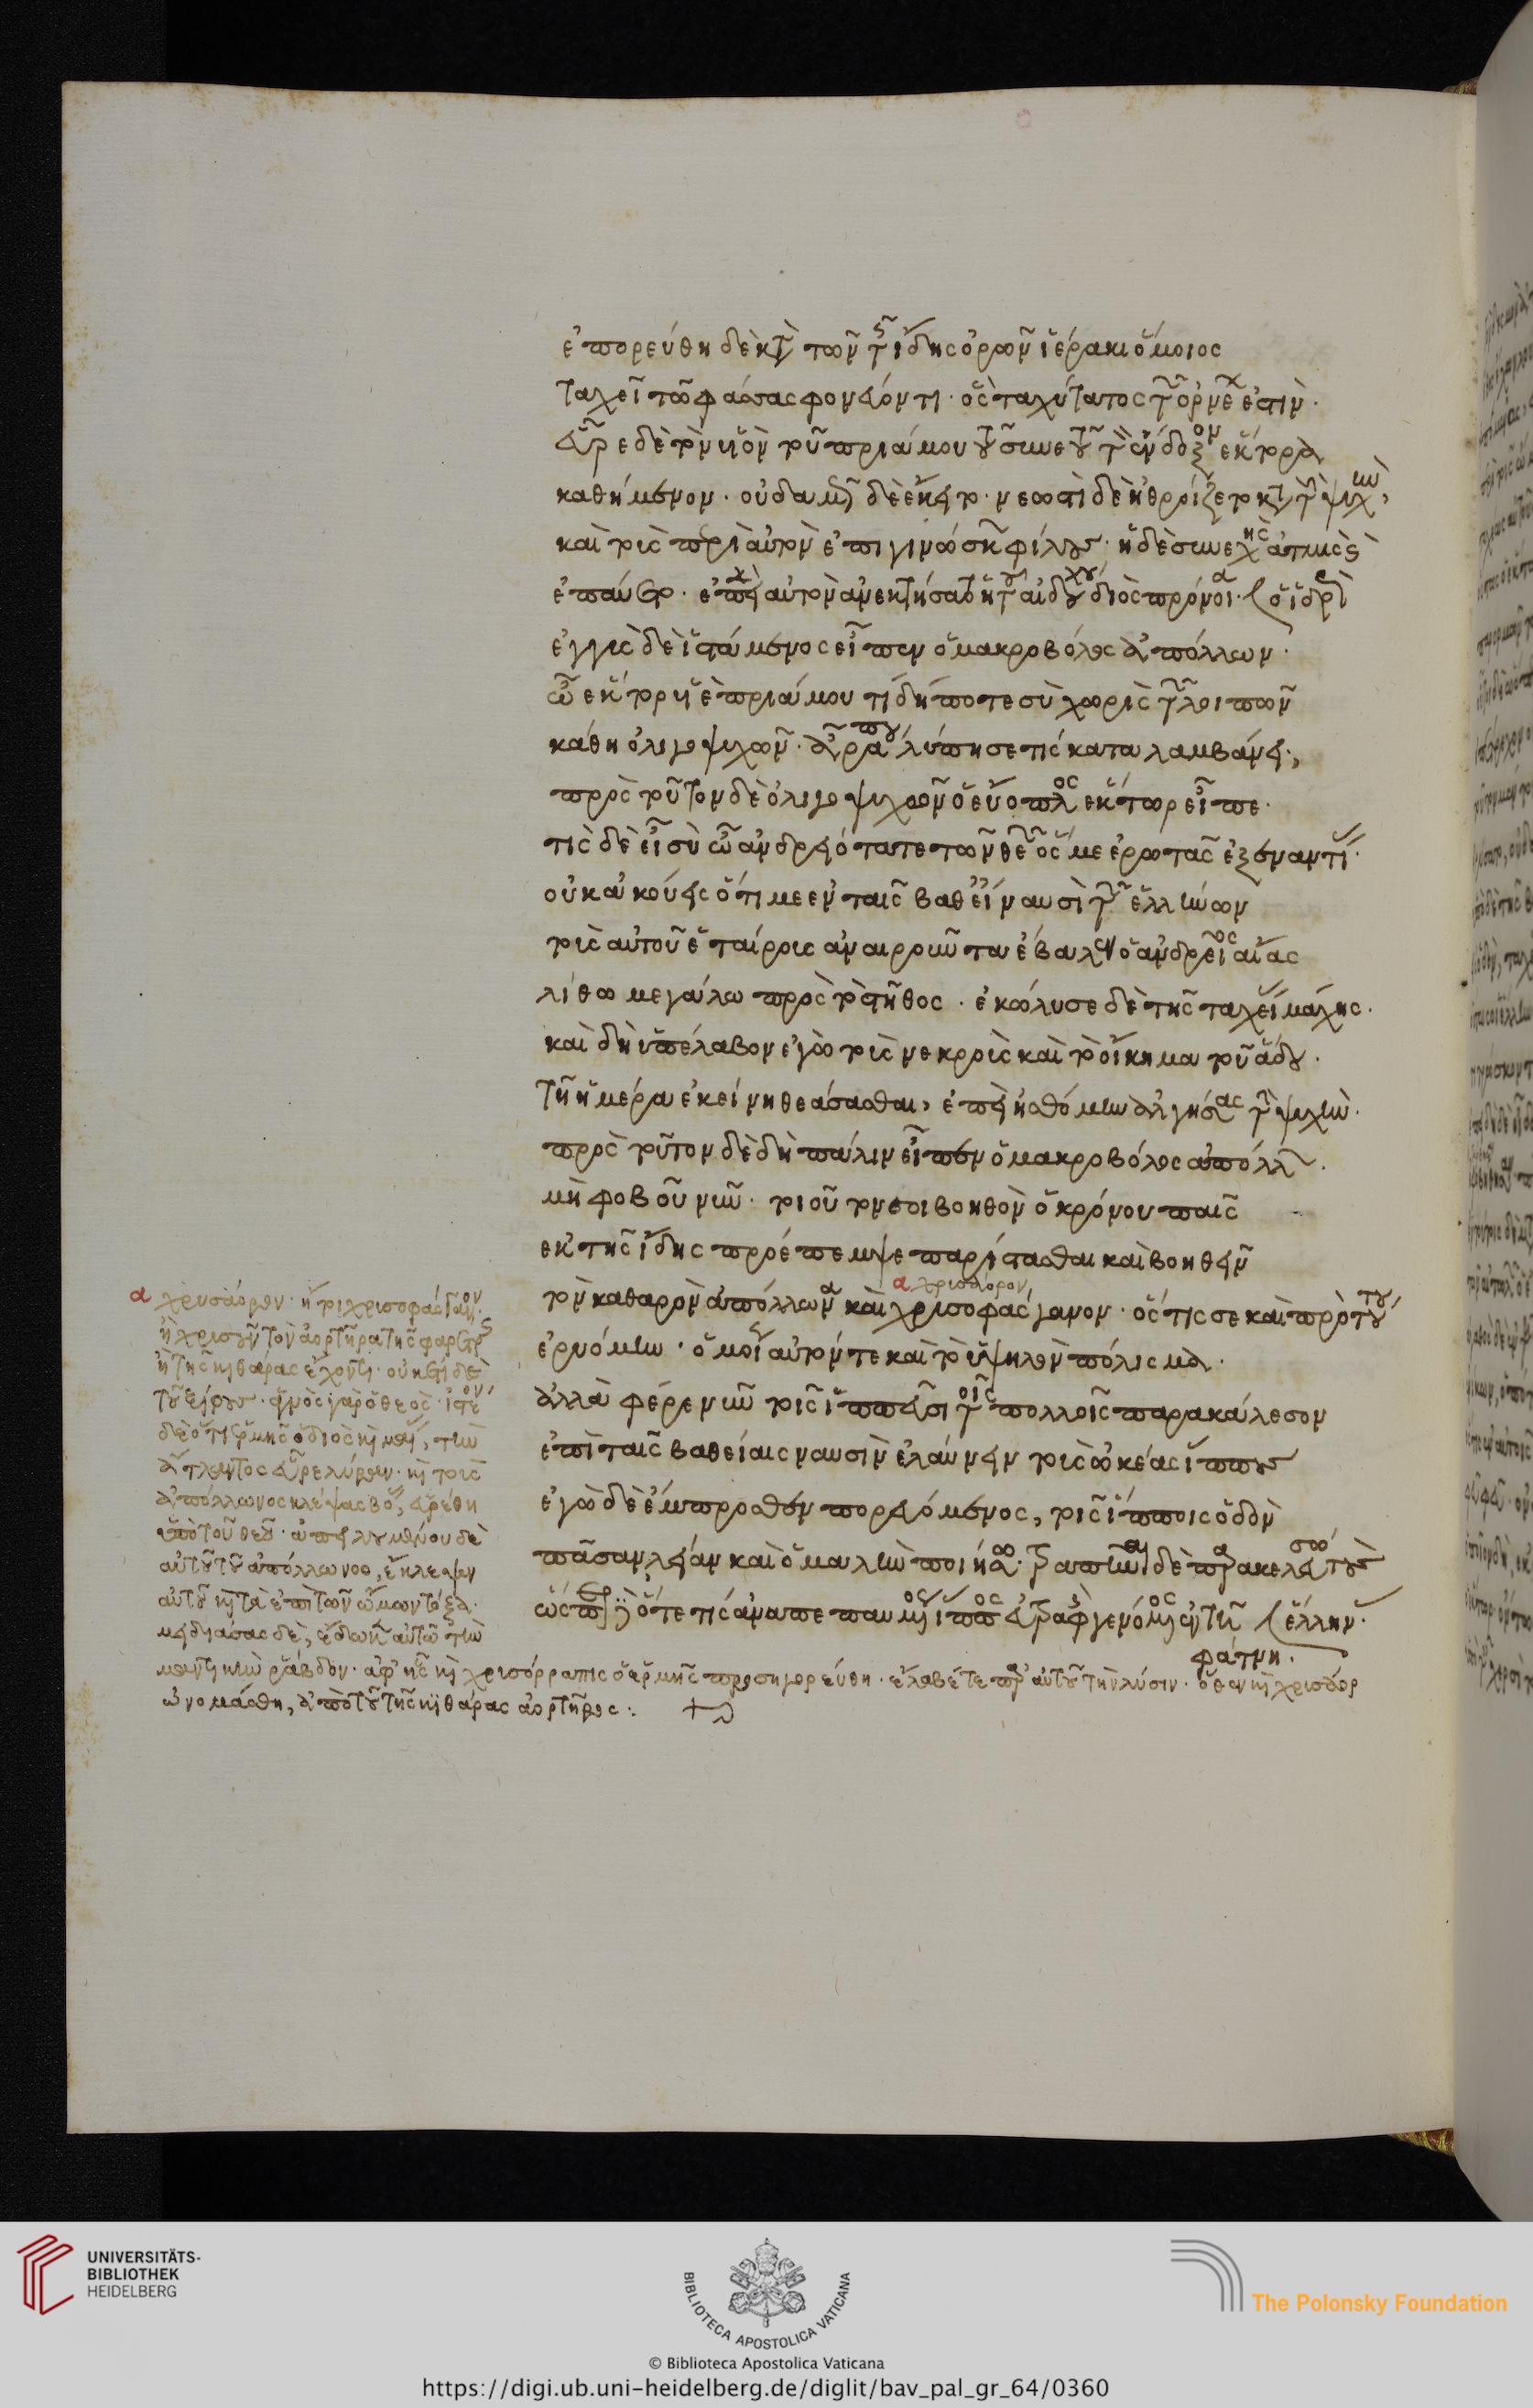 ἐπορεύθη δὲ κατὰ τῶν τῆς ἴδης ὀρῶν ἱέρακι ὅμοιος
ταχεῖ τῶ φάσσας φονεύοντι· ὃς ταχύτατος τῶν ὀρνέων ἐστὶν·
εὗρε δὲ τὸν υἱὸν τοῦ πριάμου τοῦ συνετοῦ τὸν ἔνδοξον ἕκτορα
καθήμενον· οὐδαμῶς δὲ ἔκειτο· νεωστὶ δὲ ἠθροίζετο κατὰ τὴν ψυχὴν,
καὶ τοὺς περὶ αὐτὸν ἐπιγινώσκων φίλους· ἡ δὲ συνεχὴς
ἐπαύετο· ἐπεὶ αὐτὸν ἀνεκτήσατο ἡ τοῦ διὸς πρόνοια· ὁ ἱδρὼς
ἐγγὺς δὲ ἱστάμενος εἶπεν ὁ μακροβόλος ἀπόλλων·
ὦ ἕκτορ υἱὲ πριάμου τί δήποτε σὺ χωρὶς τῶν λοιπῶν
κάθη ὀλιγοψυχῶν· ἆρά που λύπη σέ τις καταλαμβάνει·,
πρὸς τοῦτον δὲ ὀλιγοψυχῶν ὁ εὔοπλος ἕκτωρ εἶπε·
τίς δὲ εἶ σὺ ὦ ἀνδρειότατε τῶν θεῶν ὅς με ἐρωτᾶς ἐξεναντίας·
οὐκ ἀκούεις ὅτι με ἐν ταῖς βαθείαις ναυσὶ τῶν ἑλλήνων
τοὺς αὐτοῦ ἑταίρους ἀναιροῦντα ἔβαλεν ὁ ἀνδρεῖος αἴας
λίθω μεγάλω πρὸς τὸ στῆθος· ἐκώλυσε δὲ τῆς ταχείας μάχης·
καὶ δὴ ὑπέλαβον ἐγὼ τοὺς νεκροὺς καὶ τὸ οἴκημα τοῦ ἅδου·
τῆ ἡμέρα ἐκείνη θεάσασθαι, ἐπεὶ ἠσθόμην ἀλγήσας τὴν ψυχὴν·
πρὸς τοῦτον δὲ δὴ πάλιν εἶπεν ὁ μακροβόλος ἀπόλλων·
μὴ φοβοῦ νῦν· τοιοῦτόν σοι βοηθὸν ὁ κρόνου παῖς
ἐκ τῆς ἴδης προέπεμψε παρίστασθαι καὶ βοηθεῖν
α χρυσάορον
τὸν καθαρὸν ἀπόλλωνα καὶ χρυσοφάσγανον· ὅς τις σὲ καὶ πρὸ τούτου
ἐρυόμην· ὁμοίως αὐτόν τε καὶ τὸ ὑψηλὸν πόλισμα·
ἀλλὰ φέρε νῦν τοῖς ἱππεῦσι τοῖς πολλοῖς παρακάλεσον
ἐπὶ ταῖς βαθείαις ναυσὶν ἐλαύνειν τοὺς ὠκέας ἵππους
ἐγὼ δὲ ἔμπροσθεν πορευόμενος, τοῖς ἵπποις ὁδὸν
πᾶσαν λείαν καὶ ὁμαλὴν ποιήσω·
ὥσπερ δὲ ὅτε τις ἀναπεπαυμένος ἵππος γενόμενος ἐν τῆ
φάτνη·
α χρυσάορον· ἤτοι χρυσοφάσγανον·
ἢ χρυσοῦν τὸν ἀορτῆρα τῆς φαρέτρας
ἢ τῆς κιθάρας ἔχοντα· οὐκέτι δὲ
τοῦ ξίφους· ἁγνὸς γὰρ ὁ θεὸς· ἱστέον
δὲ ὅτι ἑρμῆς ὁ διὸς καὶ μαίας, τῆς
ἄτλαντος εὗρε λύραν· καὶ τοὺς
ἀπόλλωνος κλέψας βόας, εὑρέθη
ὑπὸ τοῦ θεοῦ· ἀπειλουμένου δὲ
αὐτοῦ τοῦ ἀπόλλωνος, ἔκλεψεν
αὐτοῦ καὶ τὰ ἐπὶ τῶν ὤμων τόξα·
μειδιάσας δὲ, ἔδωκεν αὐτῶ τὴν
μαντικὴν ῥάβδον· ἀφ' ἧς καὶ χρυσόρραπις ὁ ἑρμῆς προσηγορεύθη· ἔλαβέ τε παρ' αὐτοῦ τὴν λύραν· ὅθεν καὶ χρυσάορ
ὠνομάσθη, ἀπὸ τοῦ τῆς κιθάρας ἀορτῆρος:
UNIVERSITÄTS-
BIBLIOTHEK
HEIDELBERG
BIBLIOTECA APOSTOLICA VATICANA
The Polonsky Foundation
© Biblioteca Apostolica Vaticana
https://digi.ub.uni-heidelberg.de/diglit/bav_pal_gr_64/0360